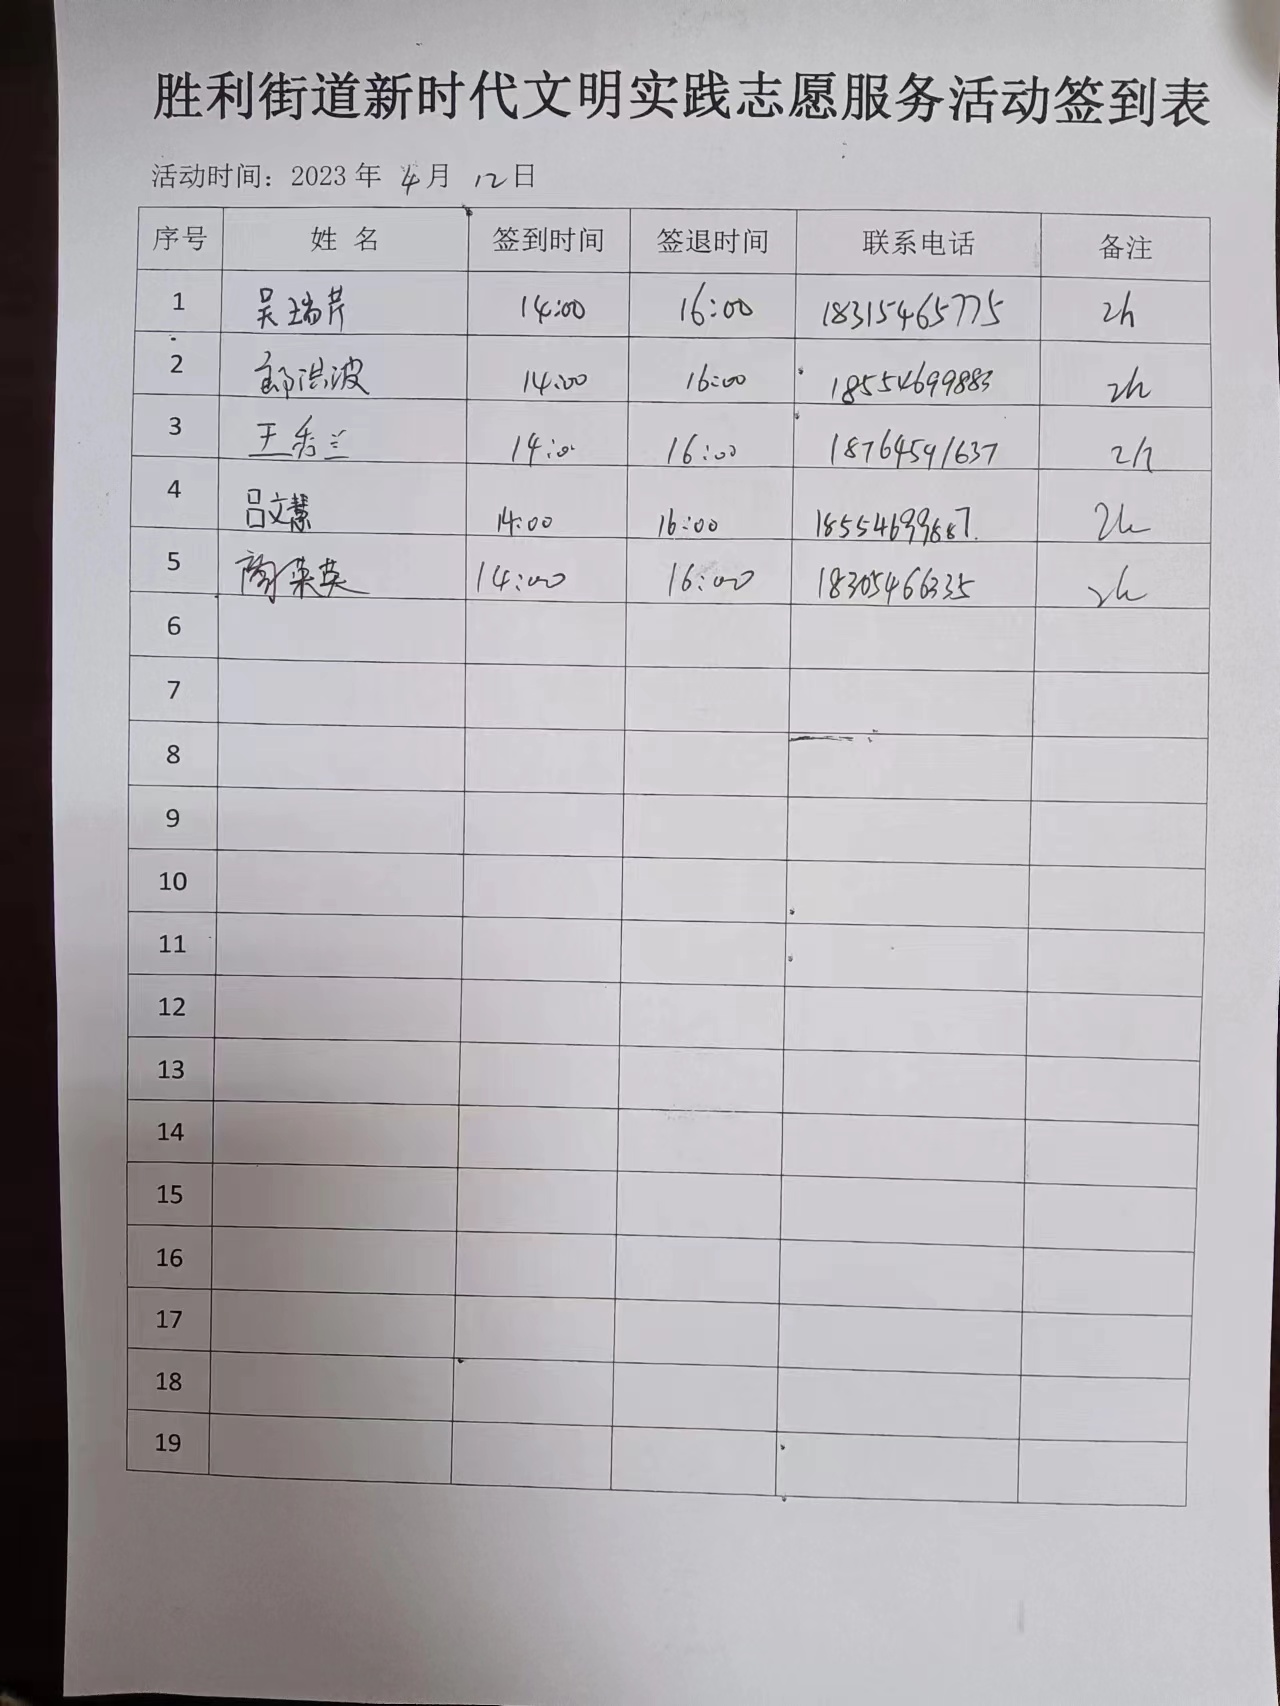 胜利街道新时代文明实践志愿服务活动签到表
活动时间：2023 年 4 月 12 日
序号 姓 名 签到时间 签退时间 联系电话 备注
1 吴瑞芹 14:00 16:00 18315465775 2h
2 郭洪波 14:00 16:00 18554699883 2h
3 王秀兰 14:00 16:00 18764591637 2h
4 吕文慧 14:00 16:00 18554699887. 2h
5 商荣英 14:00 16:00 18305466335 2h
6
7
8
9
10
11
12
13
14
15
16
17
18
19